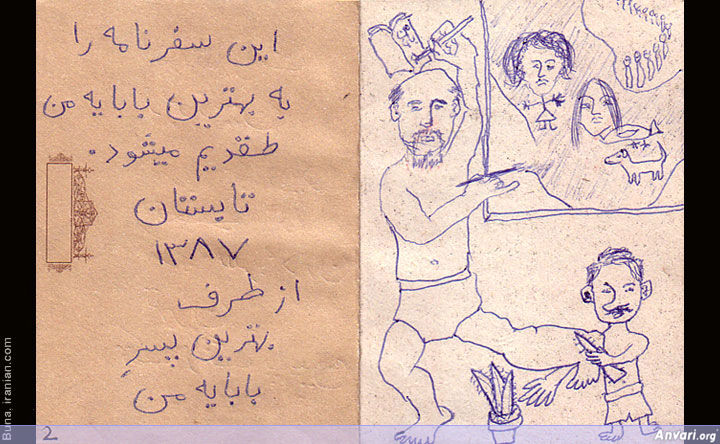 این سفرنامه را
به بهترین بابایه من
طقدیم میشود.
تابستان
۱۳۸۷
از طرف
بهترین پسرِ
بابایه من
2
Buna. iranian.com
Anvari.org